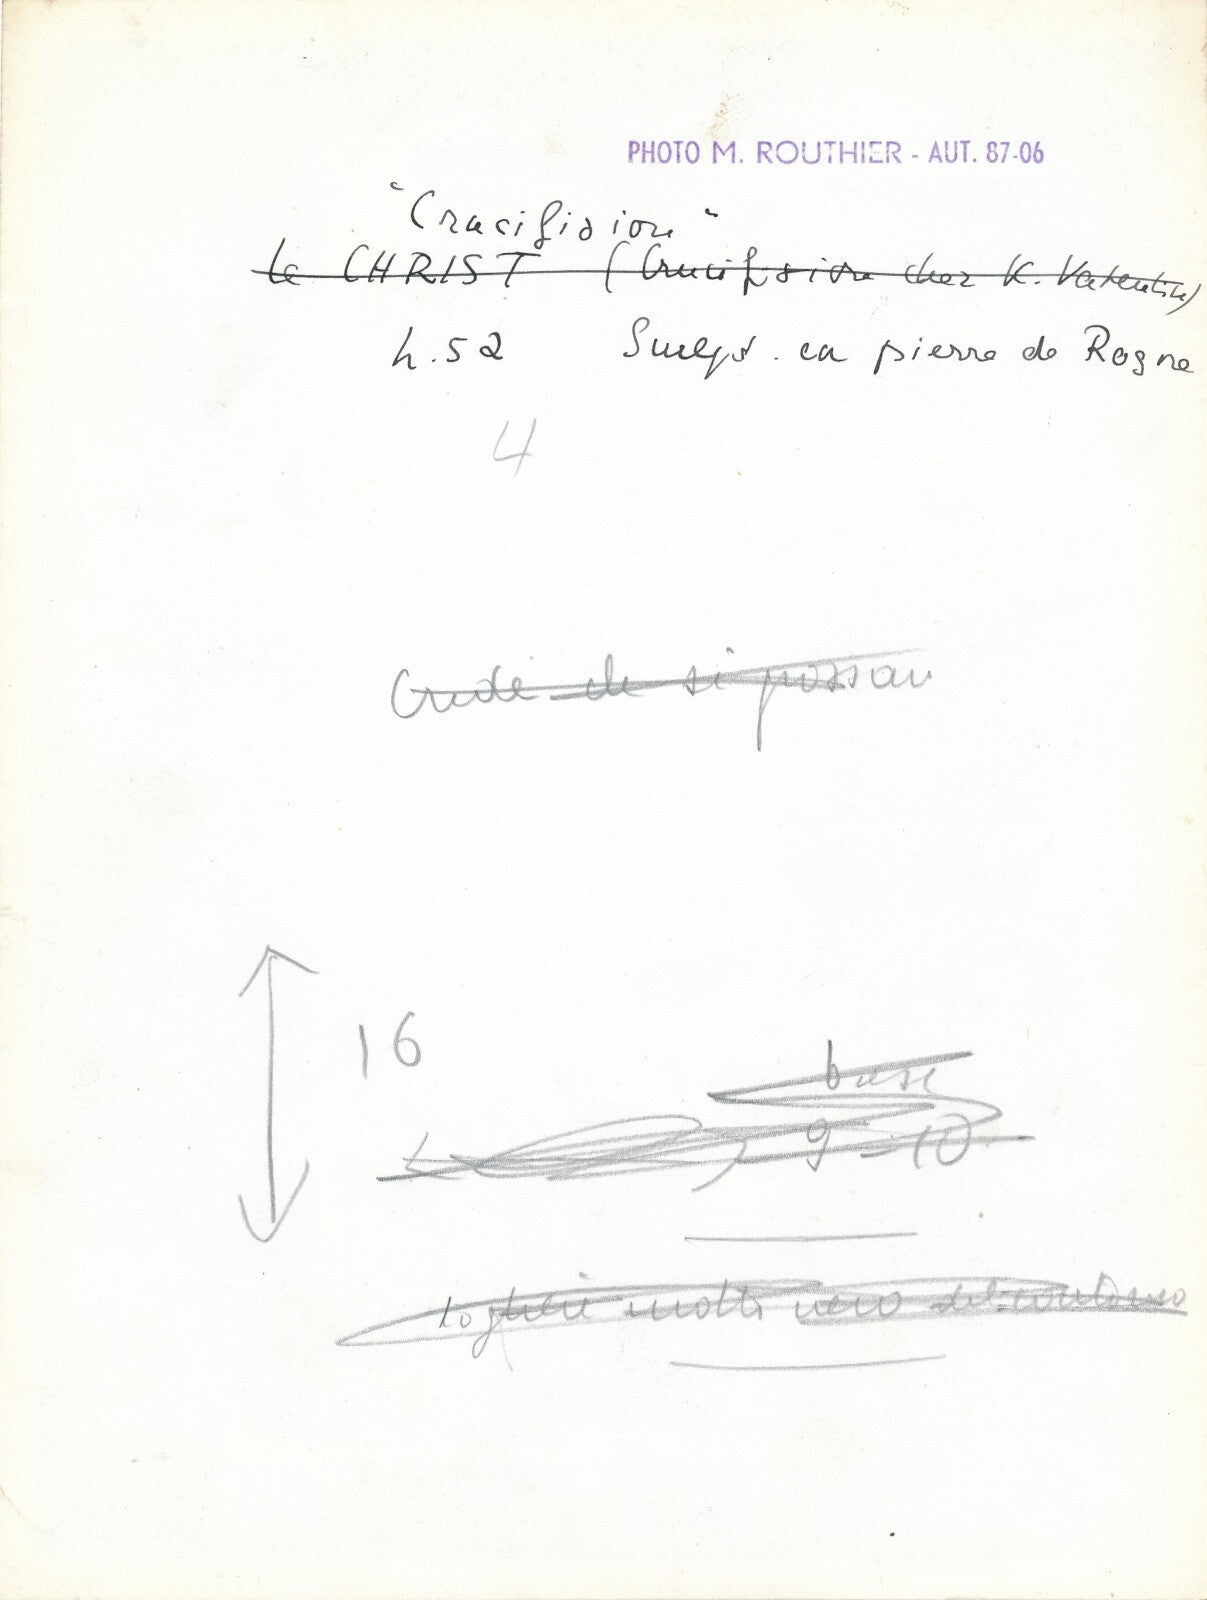 PHOTO M. ROUTHIER - AUT. 87-06
"Crucifixion"
Le CHRIST (Crucifixion chez K. Valentin)
h. 52 Sculpt. en pierre de Rogne
4
16
base
9-10
togliere molto nero del contorno